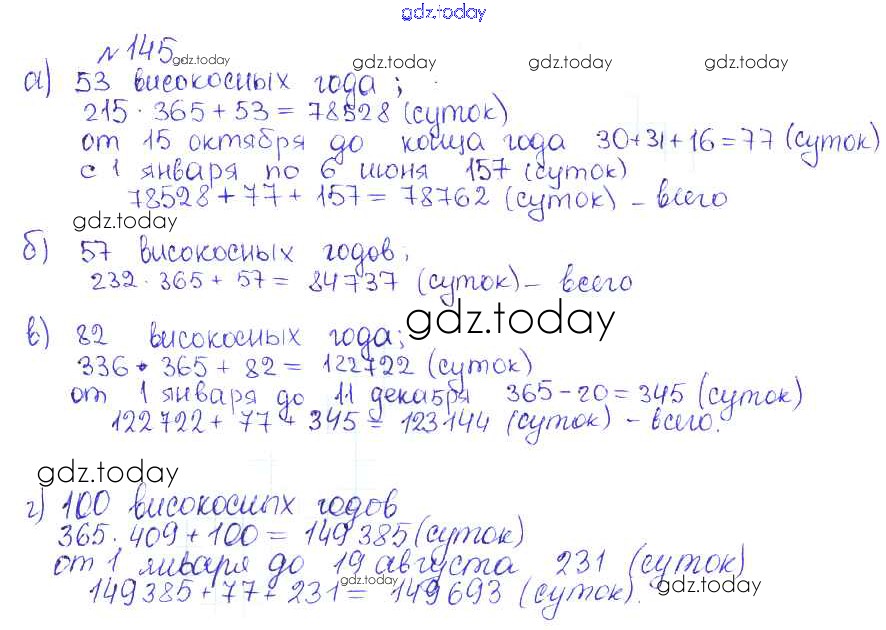 gdz.today
№ 145
gdz.today gdz.today gdz.today gdz.today
а) 53 високосных года;
215 · 365 + 53 = 78528 (суток)
от 15 октября до конца года 30+31+16=77 (суток)
с 1 января по 6 июня 157 (суток)
78528 + 77 + 157 = 78762 (суток) – всего
gdz.today
б) 57 високосных годов;
232 · 365 + 57 = 84737 (суток) – всего
gdz.today
в) 82 високосных года;
336 · 365 + 82 = 122722 (суток)
от 1 января до 11 декабря 365 – 20 = 345 (суток)
122722 + 77 + 345 = 123144 (суток) – всего.
gdz.today
г) 100 високосных годов
365 · 409 + 100 = 149385 (суток)
от 1 января до 19 августа 231 (суток)
gdz.today gdz.today
149385 + 77 + 231 = 149693 (суток).